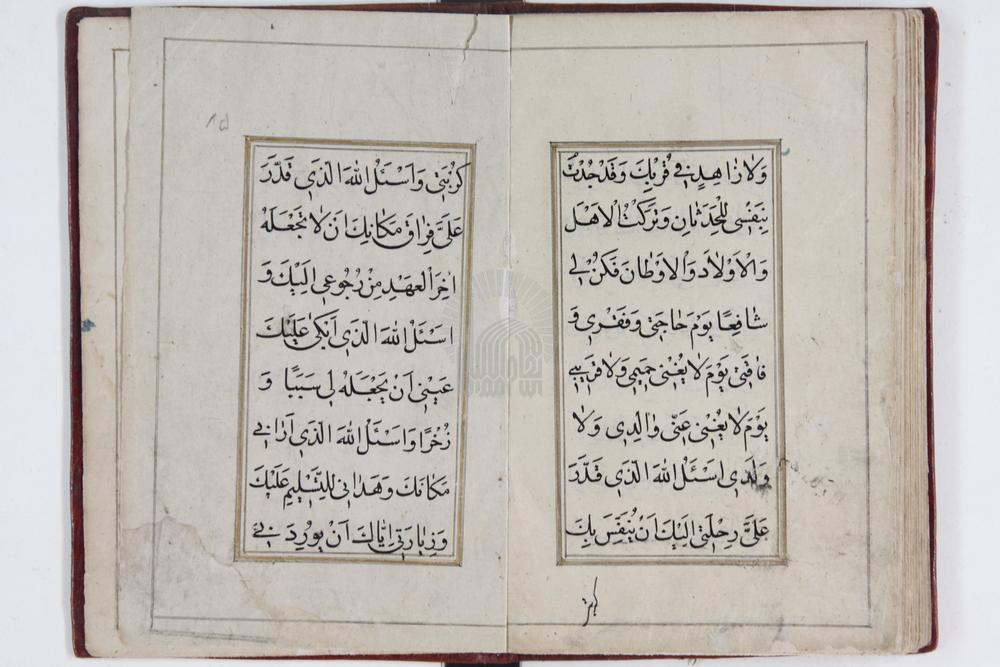 وَلَا زَاهِدٍ فِي قُرْبِكَ وَقَدْ جُدْتُ
بِنَفْسِي لِلْحَدَثَانِ وَتَرَكْتُ الْاَهْلَ
وَالْاَوْلَادَ وَالْاَوْطَانَ فَكُنْ لِي
شَافِعًا يَوْمَ حَاجَتِي وَفَقْرِي وَ
فَاقَتِي يَوْمَ لَا يُغْنِي حَمِيمِي وَلَا قَرِيبِي
يَوْمَ لَا يُغْنِي عَنِّي وَالِدِي وَلَا
وَلَدِي اَسْئَلُ اللهَ الَّذِي قَدَّرَ
عَلَيَّ رِحْلَتِي اِلَيْكَ اَنْ يُنَفِّسَ بِكَ
كربتي
۸۵
كُرْبَتِي وَاَسْئَلُ اللهَ الَّذِي قَدَّرَ
عَلَيَّ فِرَاقَ مَكَانِكَ اَنْ لَا تَجْعَلَهُ
اٰخِرَ الْعَهْدِ مِنْ رُجُوعِي اِلَيْكَ وَ
اَسْئَلُ اللهَ الَّذِي اَبْكَى عَلَيْكَ
عَيْنِي اَنْ يَجْعَلَهُ لِي سَبَبًا وَ
ذُخْرًا وَاَسْئَلُ اللهَ الَّذِي اَرَانِي
مَكَانَكَ وَهَدَانِي لِلتَّسْلِيمِ عَلَيْكَ
وَزِيَارَتِي اِيَّاكَ اَنْ يُورِدَنِي